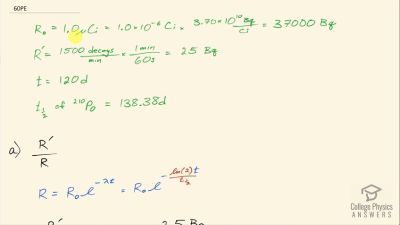 60PE
R₀ = 1.0 μCi = 1.0×10⁻⁶ Ci × 3.70×10¹⁰ Bq/Ci = 37000 Bq
R' = 1500 decays/min × 1 min/60s = 25 Bq
t = 120d
t½ of ²¹⁰Po = 138.38d
a) R'/R
R = R₀e^(-λt) = R₀e^(-ln(2)t/t½)
R' 25 Bq
College Physics
ANSWERS